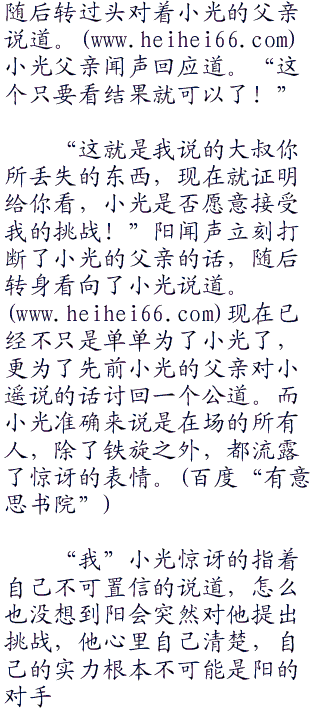 随后转过头对着小光的父亲
说道。(www.heihei66.com)
小光父亲闻声回应道。“这
个只要看结果就可以了！”
“这就是我说的大叔你
所丢失的东西，现在就证明
给你看，小光是否愿意接受
我的挑战！”阳闻声立刻打
断了小光的父亲的话，随后
转身看向了小光说道。
(www.heihei66.com)现在已
经不只是单单为了小光了，
更为了先前小光的父亲对小
遥说的话讨回一个公道。而
小光准确来说是在场的所有
人，除了铁旋之外，都流露
了惊讶的表情。(百度“有意
思书院”)
“我”小光惊讶的指着
自己不可置信的说道，怎么
也没想到阳会突然对他提出
挑战，他心里自己清楚，自
己的实力根本不可能是阳的
对手